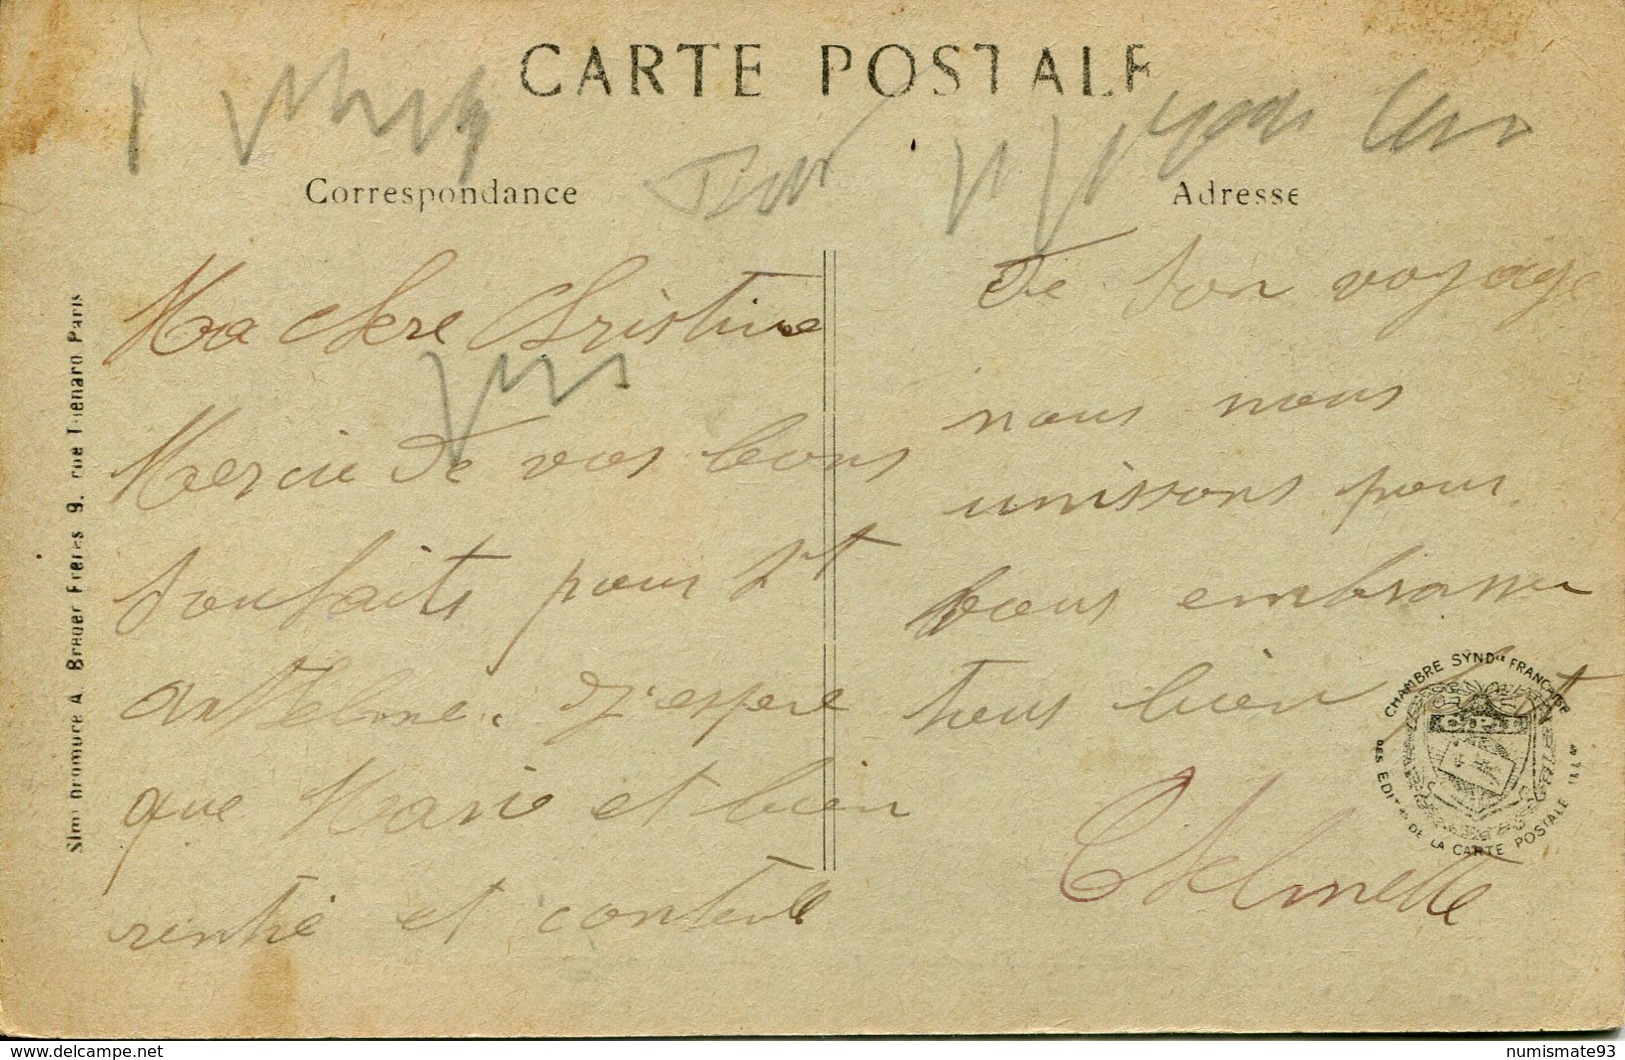 CARTE POSTALE
Correspondance
Adresse
Ma chere Christine
Mercie de vos bons
souhaits pour St
Anthelme. J'espere
que Marie et bien
rentré et contente
de son voyage
nous nous
unissons pour
vous embrasser
tous bien
Thelmette
A. Breger Frères 9. rue Thenard Paris
CHAMBRE SYND^LE FRANÇAISE
DES EDIT^RS DE LA CARTE POSTALE
numismate93